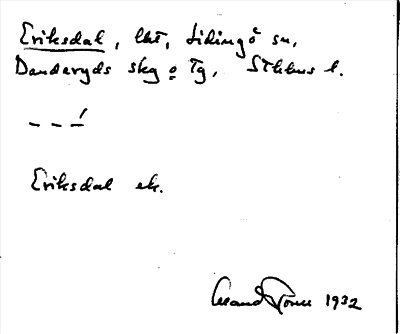 Eriksdal, lht, Lidingö sn,
Danderyds skg o Tg, Sthlms l.
– – –́
Eriksdal ek.
1932